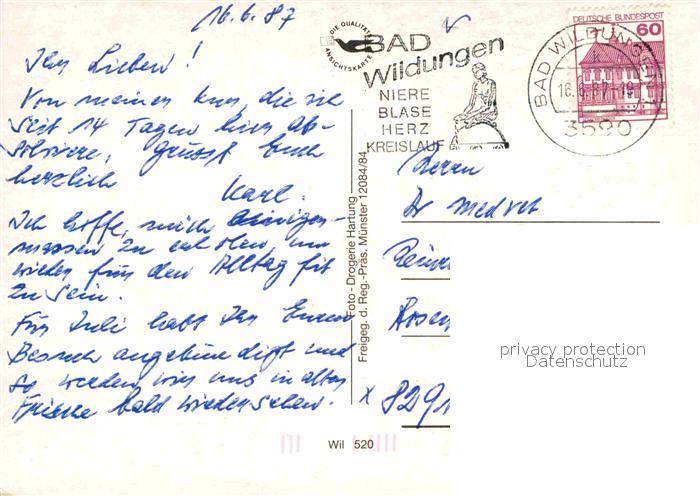 16.6.87
Ihr Lieben!
Von meiner Kur, die ich
seit 14 Tagen hier ab-
solviere, grüsst Euch
herzlich
Karl.
Ich hoffe, mich einiger-
massen zu erholen, um
wieder für den Alltag fit
zu sein.
Für Juli habt Ihr Euren
Besuch angekündigt und
so werden wir uns in alter
Frische bald wiedersehen.
DIE QUALITÄTS
ANSICHTSKARTE
BAD
Wildungen
NIERE
BLASE
HERZ
KREISLAUF
BAD WILDUNGEN
16.6.87-19
3590
DEUTSCHE BUNDESPOST
60
Foto-Drogerie Hartung
Freigeg. d. Reg.-Präs. Münster 12084/84
Herrn
Dr med vet
Rosen
x 8291
privacy protection
Datenschutz
Wil 520